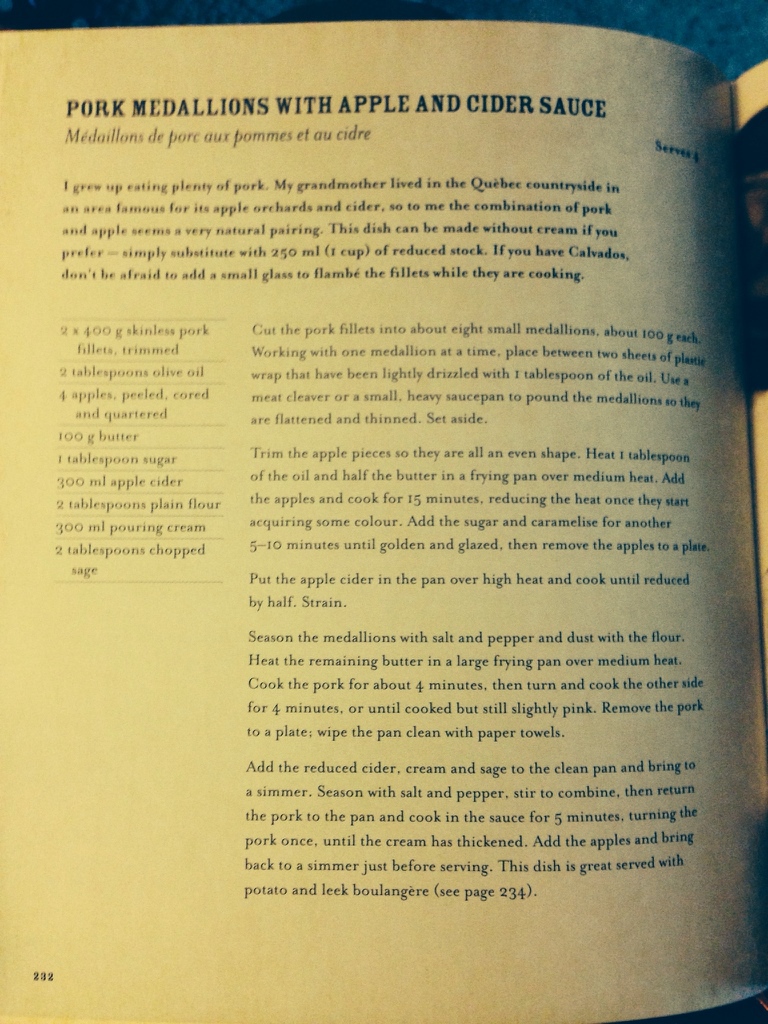 PORK MEDALLIONS WITH APPLE AND CIDER SAUCE
Médaillons de porc aux pommes et au cidre
Serves 4
I grew up eating plenty of pork. My grandmother lived in the Québec countryside in
an area famous for its apple orchards and cider, so to me the combination of pork
and apple seems a very natural pairing. This dish can be made without cream if you
prefer – simply substitute with 250 ml (1 cup) of reduced stock. If you have Calvados,
don't be afraid to add a small glass to flambé the fillets while they are cooking.
2 x 400 g skinless pork
fillets, trimmed
2 tablespoons olive oil
4 apples, peeled, cored
and quartered
100 g butter
1 tablespoon sugar
300 ml apple cider
2 tablespoons plain flour
300 ml pouring cream
2 tablespoons chopped
sage
Cut the pork fillets into about eight small medallions, about 100 g each.
Working with one medallion at a time, place between two sheets of plastic
wrap that have been lightly drizzled with 1 tablespoon of the oil. Use a
meat cleaver or a small, heavy saucepan to pound the medallions so they
are flattened and thinned. Set aside.
Trim the apple pieces so they are all an even shape. Heat 1 tablespoon
of the oil and half the butter in a frying pan over medium heat. Add
the apples and cook for 15 minutes, reducing the heat once they start
acquiring some colour. Add the sugar and caramelise for another
5–10 minutes until golden and glazed, then remove the apples to a plate.
Put the apple cider in the pan over high heat and cook until reduced
by half. Strain.
Season the medallions with salt and pepper and dust with the flour.
Heat the remaining butter in a large frying pan over medium heat.
Cook the pork for about 4 minutes, then turn and cook the other side
for 4 minutes, or until cooked but still slightly pink. Remove the pork
to a plate; wipe the pan clean with paper towels.
Add the reduced cider, cream and sage to the clean pan and bring to
a simmer. Season with salt and pepper, stir to combine, then return
the pork to the pan and cook in the sauce for 5 minutes, turning the
pork once, until the cream has thickened. Add the apples and bring
back to a simmer just before serving. This dish is great served with
potato and leek boulangère (see page 234).
232